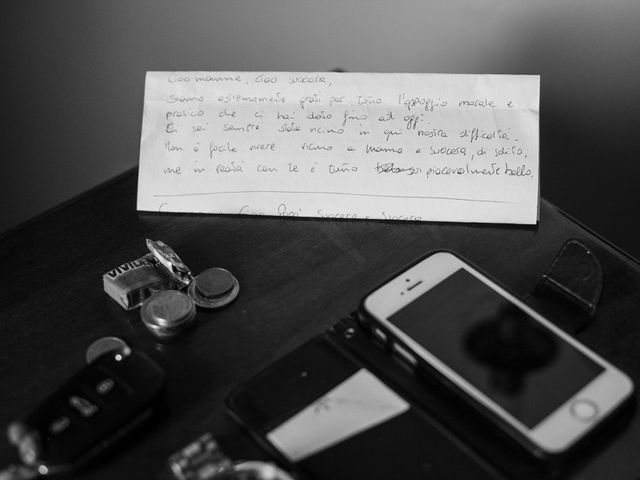 Ciao mamma, ciao suocera,
Siamo estremamente grati per tutto l'appoggio morale e
pratico che ci hai dato fino ad oggi.
Ci sei sempre stata vicino in ogni nostra difficoltà.
Non è facile vivere vicino a mamma e suocera, di solito,
ma in realtà con te è tutto piacevolmente bello.
VIVID